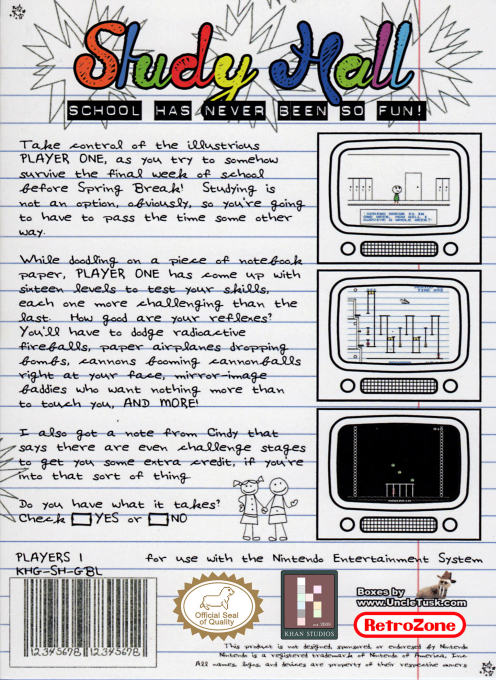 Study Hall
SCHOOL HAS NEVER BEEN SO FUN!
Take control of the illustrious
PLAYER ONE, as you try to somehow
survive the final week of school
before Spring Break! Studying is
not an option, obviously, so you're going
to have to pass the time some other
way.
While doodling on a piece of notebook
paper, PLAYER ONE has come up with
sixteen levels to test your skills,
each one more challenging than the
last. How good are your reflexes?
You'll have to dodge radioactive
fireballs, paper airplanes dropping
bombs, cannons booming cannonballs
right at your face, mirror-image
baddies who want nothing more than
to touch you, AND MORE!
I also got a note from Cindy that
says there are even challenge stages
to get you some extra credit, if you're
into that sort of thing
Do you have what it takes?
Check YES or NO
SPRING BREAK IS IN
ONE WEEK. HOW WILL I
SURVIVE A WHOLE WEEK?
PLAYERS 1
for use with the Nintendo Entertainment System
KHG-SH-GBL
12345678 12345678
Official Seal
of Quality
KHAN STUDIOS
Boxes by
www.UncleTusk.com
RetroZone
This product is not designed, sponsored, or endorsed by Nintendo
Nintendo is a registered trademark of Nintendo of America, Inc
All names, logos, and devices are property of their respective owners